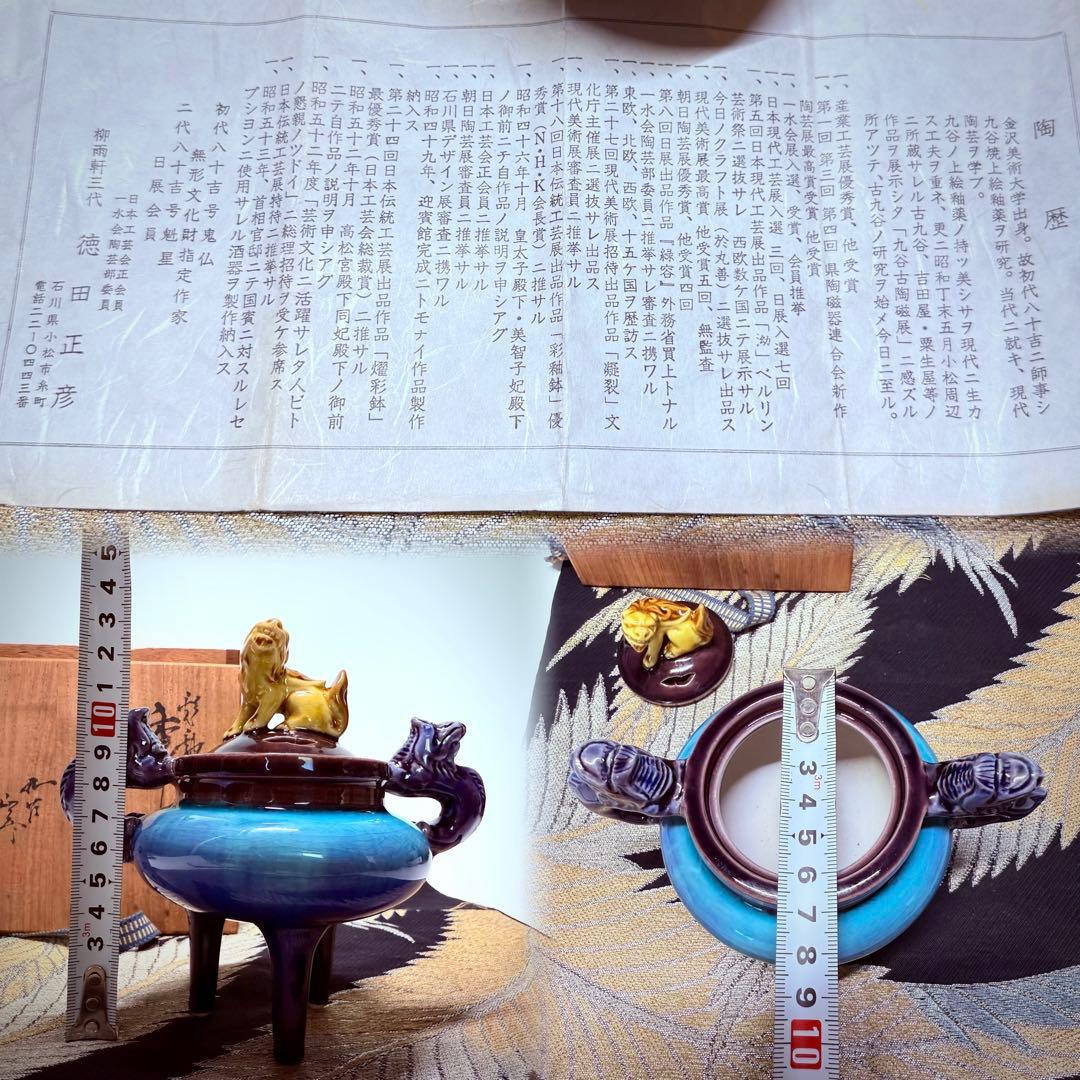 陶歴
金沢美術大学出身。故初代八十吉ニ師事シ
九谷焼上絵釉薬ヲ研究。当代ニ就キ、現代
陶芸ヲ学ブ。
九谷ノ上絵釉薬ノ持ツ美シサヲ現代ニ生カ
ス工夫ヲ重ネ、更ニ昭和丁末五月小松周辺
ニ所蔵サレル古九谷、吉田屋・粟生屋等ノ
作品ヲ展示シタ「九谷古陶磁展」ニ感ズル
所アツテ、古九谷ノ研究ヲ始メ今日ニ至ル。
一、産業工芸展優秀賞、他受賞
一、第一回第三回第四回県陶磁器連合会新作
陶芸展最高賞受賞、他受賞
一、一水会展入選、受賞、会員推挙
一、日本現代工芸展入選三回、日展入選七回
一、第五回日本現代工芸展出品作品「泑」ベルリン
芸術祭ニ選抜サレ 西欧数ケ国ニテ展示サル
一、今日ノクラフト展（於丸善）ニ選抜サレ出品ス
一、現代美術展最高賞、他受賞五回、無監査
一、朝日陶芸展優秀賞、他受賞四回
一、一水会陶芸部委員ニ推挙サレ審査ニ携ワル
一、第八回日展出品作品『緑容』外務省買上トナル
一、東欧、北欧、西欧、十五ケ国ヲ歴訪ス
一、第二十七回現代美術展招待出品作品「凝裂」文
化庁主催展ニ選抜サレ出品ス
一、現代美術展審査員ニ推挙サル
一、第十八回日本伝統工芸展出品作品「彩釉鉢」優
秀賞（N・H・K会長賞）ニ推サル
一、昭和四十六年十月 皇太子殿下・美智子妃殿下
ノ御前ニテ自作品ノ説明ヲ申シアグ
一、日本工芸会正会員ニ推挙サル
一、朝日陶芸展審査員ニ推挙サル
一、石川県デザイン展審査ニ携ワル
一、昭和四十九年、迎賓館完成ニトモナイ作品製作
納入ス
一、第二十四回日本伝統工芸展出品作品「燿彩鉢」
最優秀賞（日本工芸会総裁賞）ニ推サル
一、昭和五十二年十月 高松宮殿下同妃殿下ノ御前
ニテ自作品ノ説明ヲ申シアグ
一、昭和五十二年度「芸術文化ニ活躍サレタ人ビト
ノ懇親ノツドイ」ニ総理招待ヲ受ケ参席ス
一、日本伝統工芸展特待ニ推挙サル
一、昭和五十三年、首相官邸ニテ国賓ニ対スルレセ
プションニ使用サレル酒器ヲ製作納入ス
初代八十吉号鬼仏
無形文化財指定作家
二代八十吉号魁星
日展会員
日本工芸会正会員
一水会陶芸部委員
柳雨軒三代 徳田正彦
石川県小松市糸町
電話二二-〇四四三番
5
4
3
2
1
10
9
8
7
6
5
4
3
3m
3
3m
4
5
6
7
8
9
10